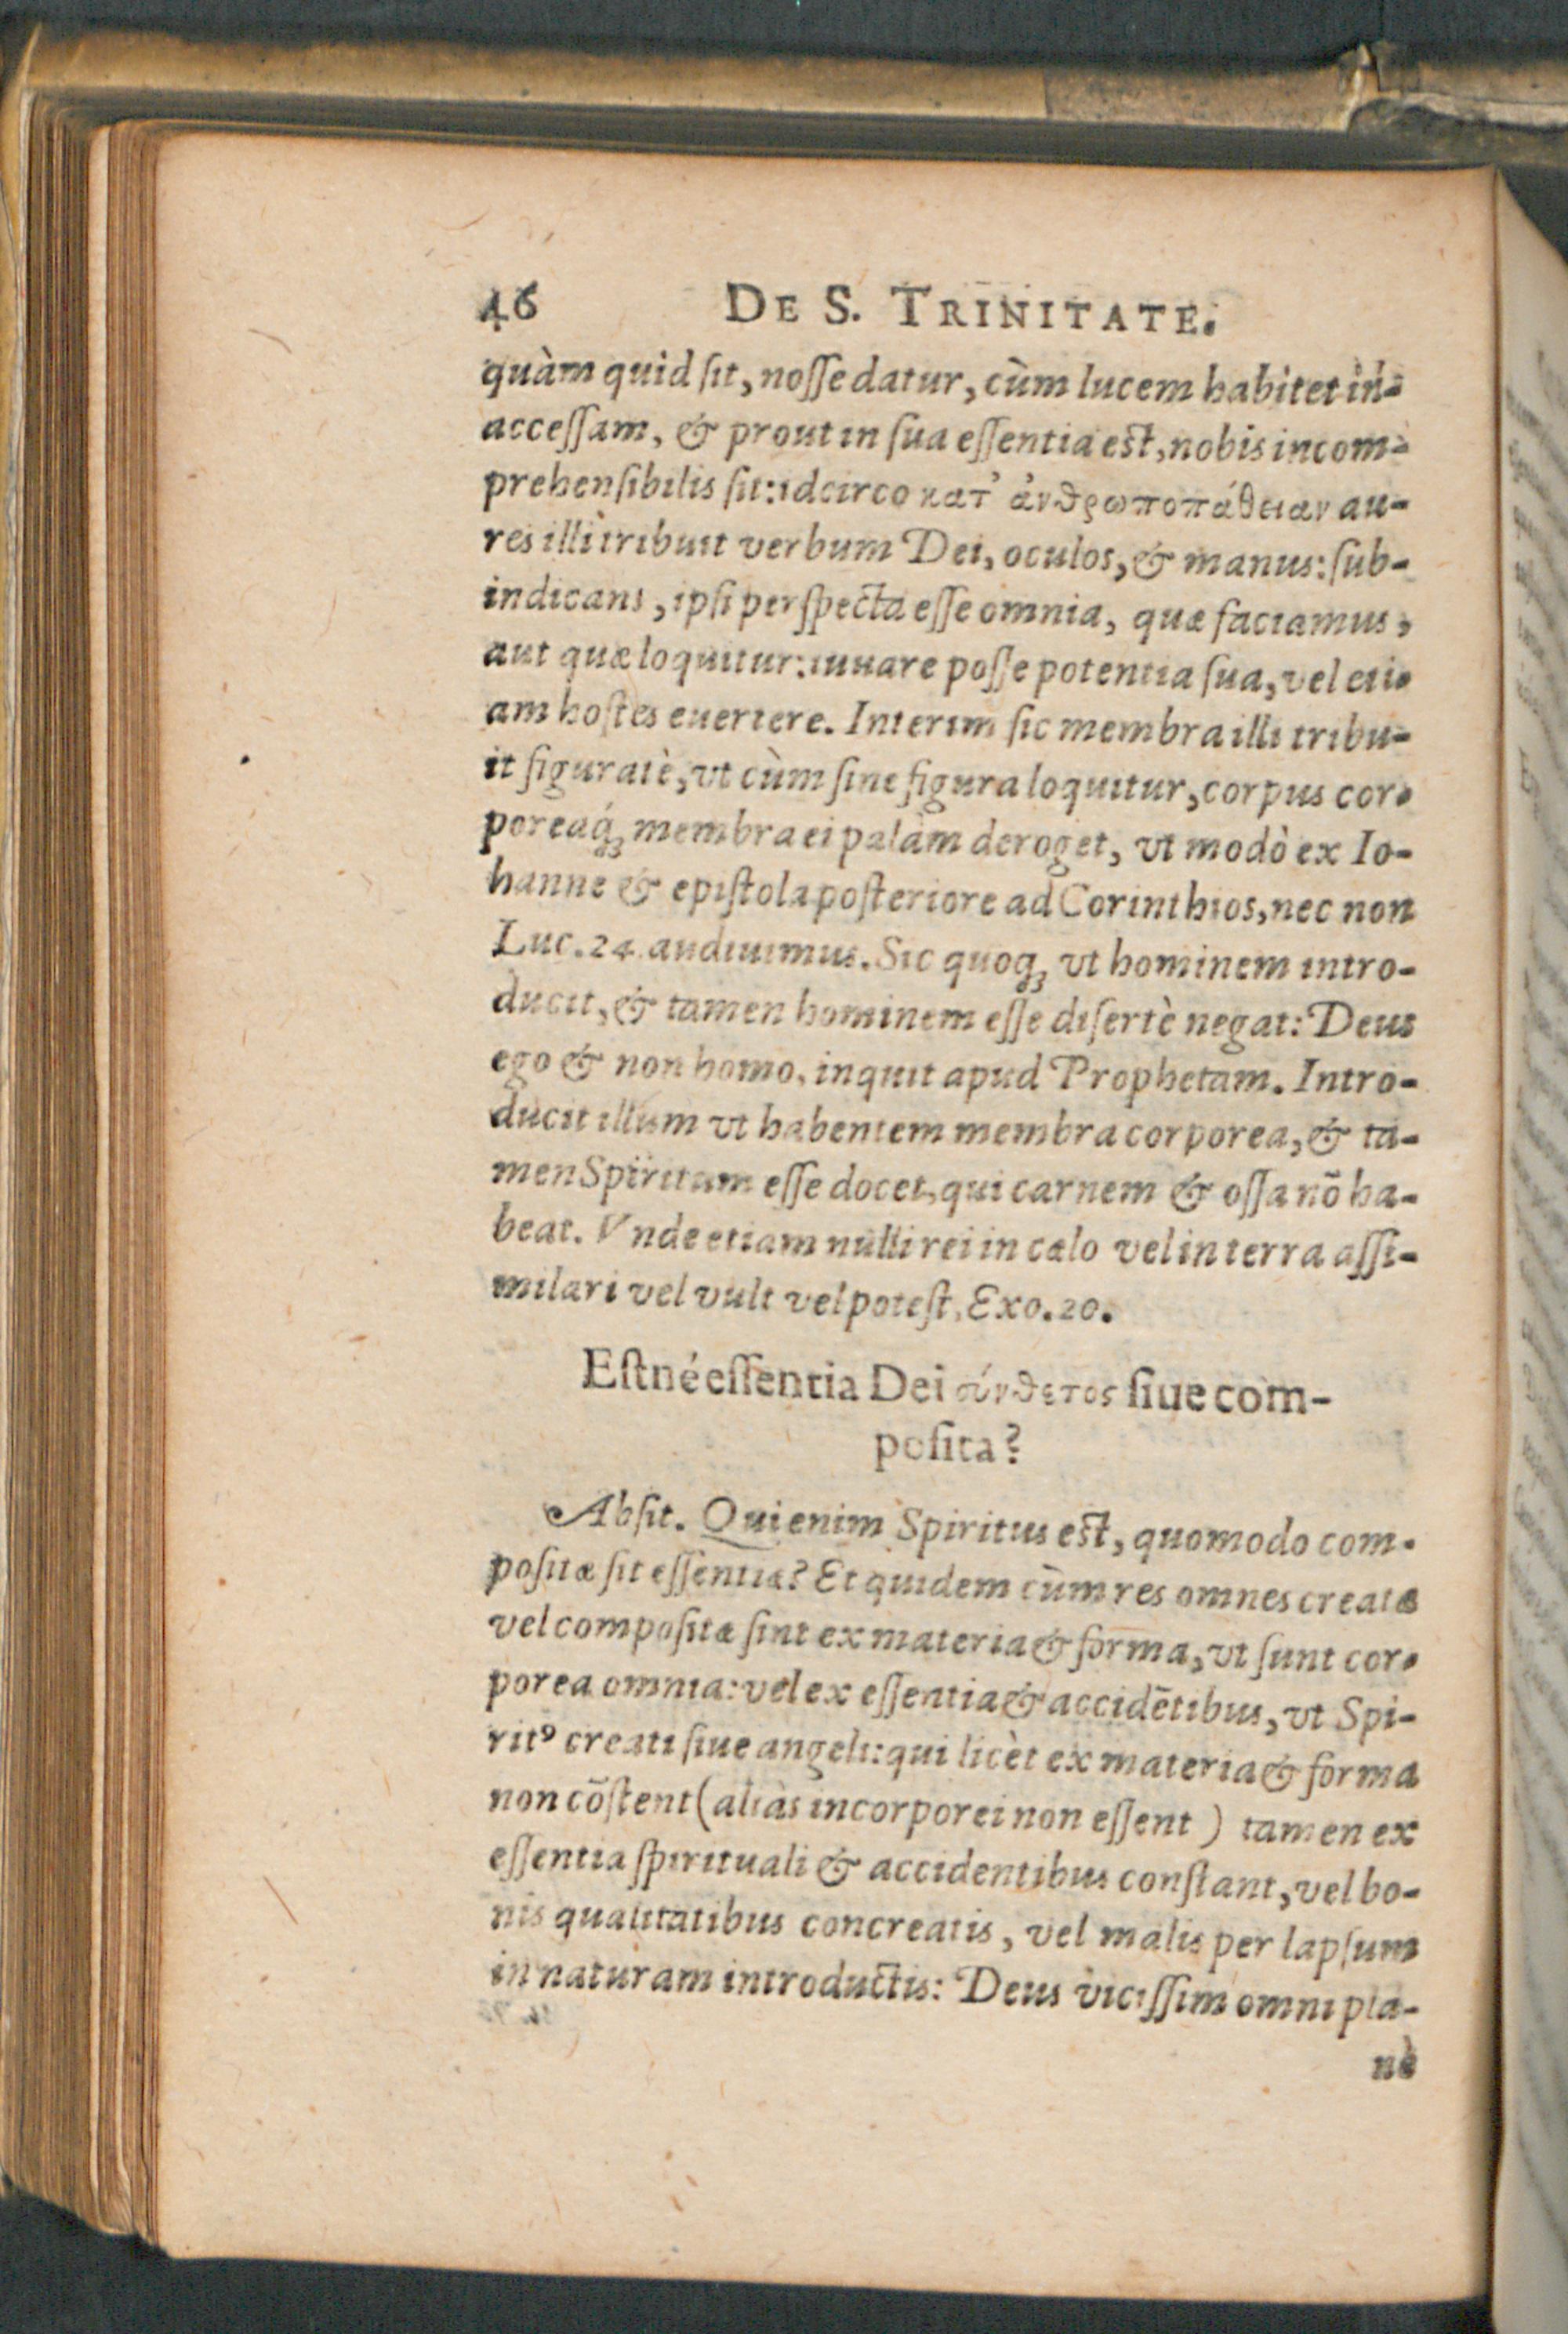 46 DE S. TRINITATE.
quàm quid ſit, noſſe datur, cùm lucem habitet in-
acceſſam, & prout in ſua eſſentia eſt, nobis incom-
prehenſibilis ſit: idcirco κατ' ἀνθρωποπάθειαν au-
res illi tribuit verbum Dei, oculos, & manus: ſub-
indicans, ipſi perſpecta eſſe omnia, quæ faciamus,
aut quæ loquitur: iuuare poſſe potentia ſua, vel eti-
am hoſtes euertere. Interim ſic membra illi tribu-
it figuratè, vt cùm ſine figura loquitur, corpus cor-
poreaq́ꝫ membra ei palàm deroget, vt modò ex Io-
hanne & epiſtola poſteriore ad Corinthios, nec non
Luc. 24. audiuimus. Sic quoqꝫ vt hominem intro-
ducit, & tamen hominem eſſe diſertè negat: Deus
ego & non homo, inquit apud Prophetam. Intro-
ducit illum vt habentem membra corporea, & ta-
men Spiritum eſſe docet, qui carnem & oſſa nõ ha-
beat. Vnde etiam nulli rei in cælo vel in terra aſſi-
milari vel vult vel poteſt, Exo. 20.
Eſtné eſſentia Dei σύνθετος ſiue com-
poſita?
Abſit. Qui enim Spiritus eſt, quomodo com-
poſitæ ſit eſſentiæ? Et quidem cùm res omnes creatæ
vel compoſitæ ſint ex materia & forma, vt ſunt cor-
porea omnia: vel ex eſſentia & accidẽtibus, vt Spi-
ritꝰ creati ſiue angeli: qui licèt ex materia & forma
non cõſtent (aliàs incorporei non eſſent) tamen ex
eſſentia ſpirituali & accidentibus conſtant, vel bo-
nis qualitatibus concreatis, vel malis per lapſum
in naturam introductis: Deus viciſſim omni pla-
nè